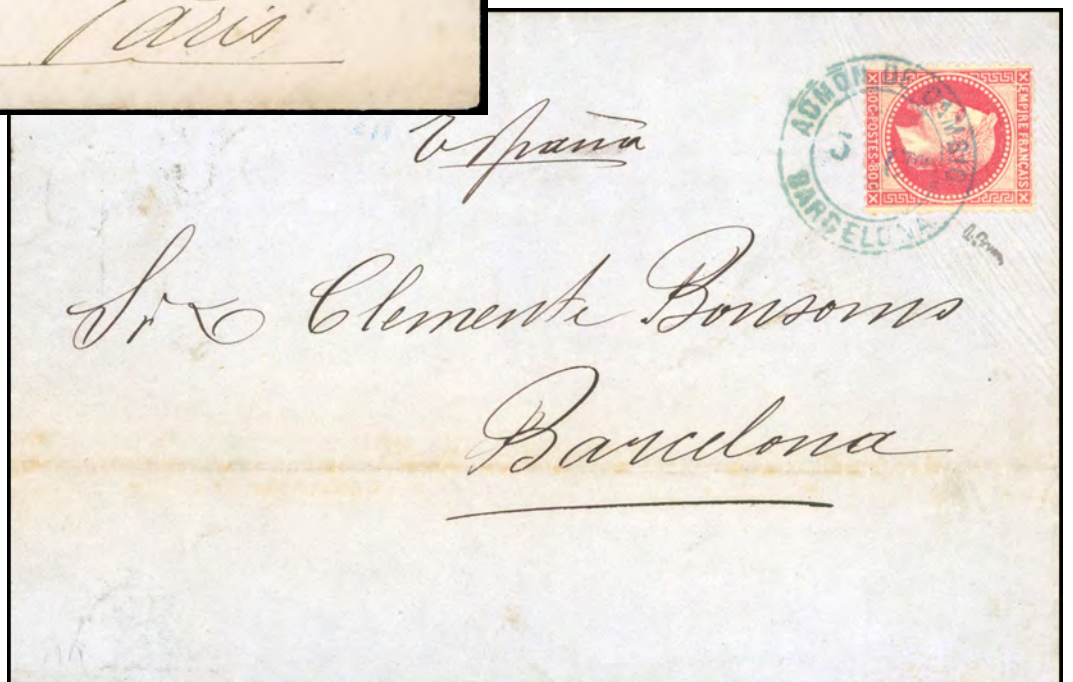 Paris
España
ADMON DE CAMBIO
BARCELONA
EMPIRE FRANÇAIS
80C POSTES 80C
Sr D Clemente Bonsoms
Barcelona